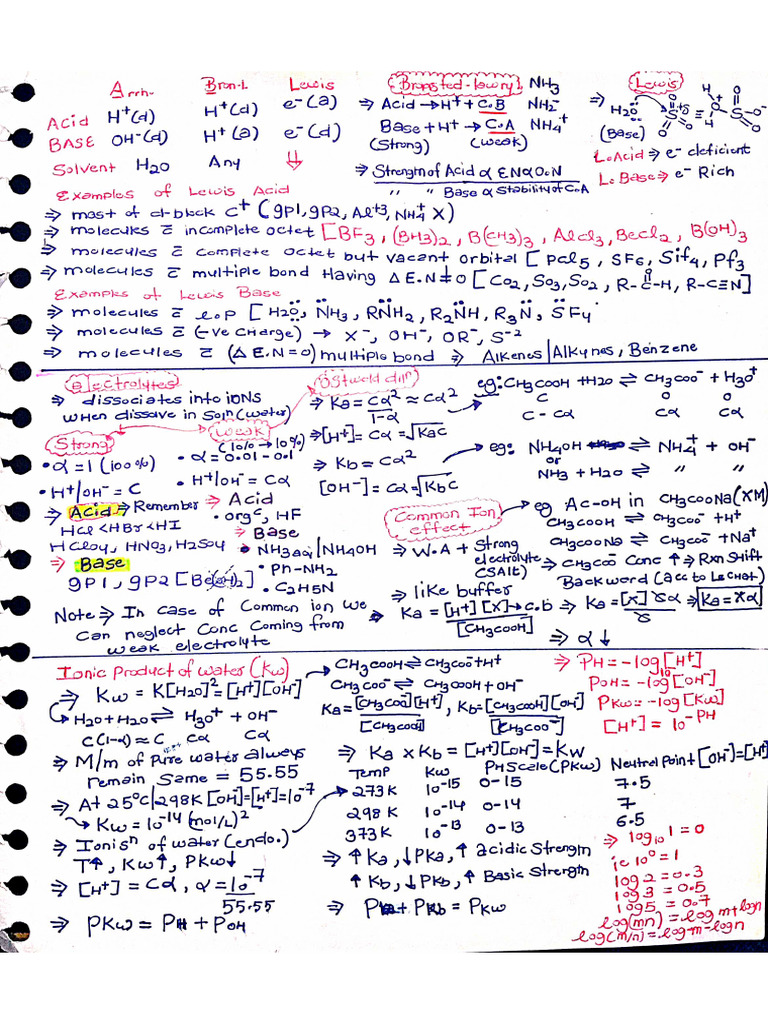 Arrh. Bron-L Lewis
Acid H⁺(d) H⁺(d) e⁻(a)
BASE OH⁻(d) H⁺(a) e⁻(d)
Solvent H₂O Any ⇓
Bronsted-lowry NH₃
⇒ Acid → H⁺ + C.B NH₂⁻
Base + H⁺ → C.A NH₄⁺
(Strong) (weak)
⇒ Strength of Acid α EN α O.N
" " Base α Stability of C.A
Lewis
⇒ H₂O
(Base)
L.Acid ⇒ e⁻ deficient
L.Base ⇒ e⁻ Rich
Examples of Lewis Acid
⇒ most of d-block C⁺ (gp1, gp2, Al⁺³, NH₄⁺ X)
⇒ molecules c̄ incomplete octet [BF₃, (BH₃)₂, B(CH₃)₃, AlCl₃, BeCl₂, B(OH)₃
⇒ molecules c̄ complete octet but vacant orbital [PCl₅, SF₆, SiF₄, PF₃
⇒ molecules c̄ multiple bond Having Δ E.N ≠ 0 [CO₂, SO₃, SO₂, R-C-H, R-C≡N]
Examples of Lewis Base
⇒ molecules c̄ l.p [H₂O, NH₃, RNH₂, R₂NH, R₃N, SF₄
⇒ molecules c̄ (-ve charge) → X⁻, OH⁻, OR⁻, S⁻²
⇒ molecules c̄ (Δ E.N = 0) multiple bond ⇒ Alkenes/Alkynes, Benzene
electrolytes
⇒ dissociates into ions
when dissove in Solⁿ (water)
Strong
• α = 1 (100%)
• H⁺/OH⁻ = C
⇒ Acid → Remember
HCl < HBr < HI
HClO₄, HNO₃, H₂SO₄
⇒ Base
gp1, gp2 [Be(OH)₂]
weak
(10% → 10%)
• α = 0.01 - 0.1
• H⁺/OH⁻ = Cα
⇒ Acid
• orgᶜ, HF
⇒ Base
• NH₃aq/NH₄OH
• Ph-NH₂
• C₂H₅N
Note ⇒ In case of Common ion we
can neglect Conc coming from
weak electrolyte
Ostwald dilⁿ
⇒ Ka = Cα²/1-α ≈ Cα²
⇒ [H⁺] = Cα = √KaC
⇒ Kb = Cα²
[OH⁻] = Cα = √KbC
eg: CH₃COOH + H₂O ⇌ CH₃COO⁻ + H₃O⁺
C O O
C - Cα Cα Cα
eg: NH₄OH ⇌ NH₄⁺ + OH⁻
or
NH₃ + H₂O ⇌ " "
Common Ion effect
⇒ W.A + Strong electrolyte (SAlt)
⇒ like buffer
Ka = [H⁺] [X] → C.b / [CH₃COOH]
eg Ac-OH in CH₃COONa (XM)
CH₃COOH ⇌ CH₃COO⁻ + H⁺
CH₃COONa ⇌ CH₃COO⁻ + Na⁺
⇒ CH₃COO⁻ Conc ↑ ⇒ Rxn Shift
Backword (acc to Le Chat)
⇒ Ka = [X] Cα / C ⇒ Ka = Xα
⇒ α ↓
Ionic Product of water (Kw)
⇒ Kw = K[H₂O]² = [H⁺][OH⁻]
H₂O + H₂O ⇌ H₃O⁺ + OH⁻
C(1-α) ≈ C Cα Cα
⇒ M/m of Pure water always
remain same = 55.55
⇒ At 25°C/298K [OH⁻] = [H⁺] = 10⁻⁷
Kw = 10⁻¹⁴ (mol/L)²
⇒ Ionisⁿ of water (endo.)
T↑, Kw↑, PKw↓
⇒ [H⁺] = Cα, α = 10⁻⁷/55.55
⇒ PKw = PH + POH
CH₃COOH ⇌ CH₃COO⁻ + H⁺
CH₃COO⁻ ⇌ CH₃COOH + OH⁻
Ka = [CH₃COO⁻][H⁺]/[CH₃COOH], Kb = [CH₃COOH][OH⁻]/[CH₃COO⁻]
⇒ Ka × Kb = [H⁺][OH⁻] = Kw
Temp Kw PH Scale (PKw) Neutral Point [OH⁻] = [H⁺]
273 K 10⁻¹⁵ 0-15 7.5
298 K 10⁻¹⁴ 0-14 7
373 K 10⁻¹³ 0-13 6.5
⇒ ↑ Ka, ↓ PKa, ↑ acidic Strength
↑ Kb, ↓ PKb, ↑ Basic Strength
⇒ PKa + PKb = PKw
⇒ PH = -log₁₀[H⁺]
POH = -log[OH⁻]
PKw = -log[Kw]
[H⁺] = 10⁻ᴾᴴ
⇒ log₁₀1 = 0
ie 10⁰ = 1
log 2 = 0.3
log 3 = 0.5
log 5 = 0.7
log(mn) = log m + log n
log(m/n) = log m - log n